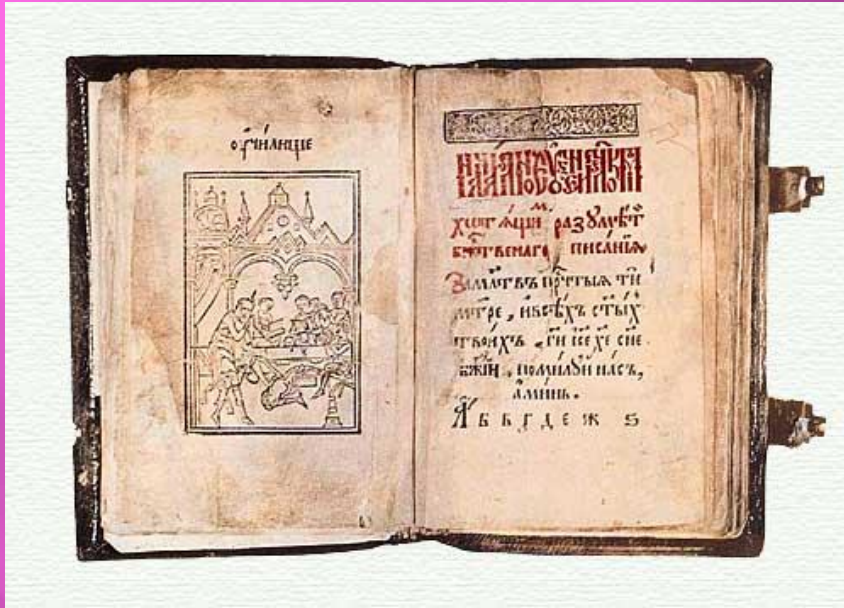 ѹ҆чи́лище
хотѧ́щиⷨ разꙋмѣ́ти
бжⷭ҇твенаго писа́нїѧ
За мл҃твъ прⷱ҇тыѧ ти
мт҃ре, и҆ всѣ́хъ ст҃ы́хъ
твои́хъ, гн҃ и҆се хе сн҃е
бж҃їи, поми́лꙋи на́съ,
а҆ми́нь.
А б в г д е ж ѕ